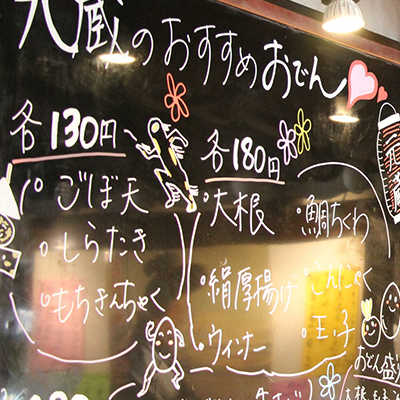 九蔵のおすすめおでん
各130円、
ごぼ天
しらたき
もちきんちゃく
各180円
大根
絹厚揚げ
ウィンナー
鯛ちくわ
こんにゃく
玉子
おでん盛り